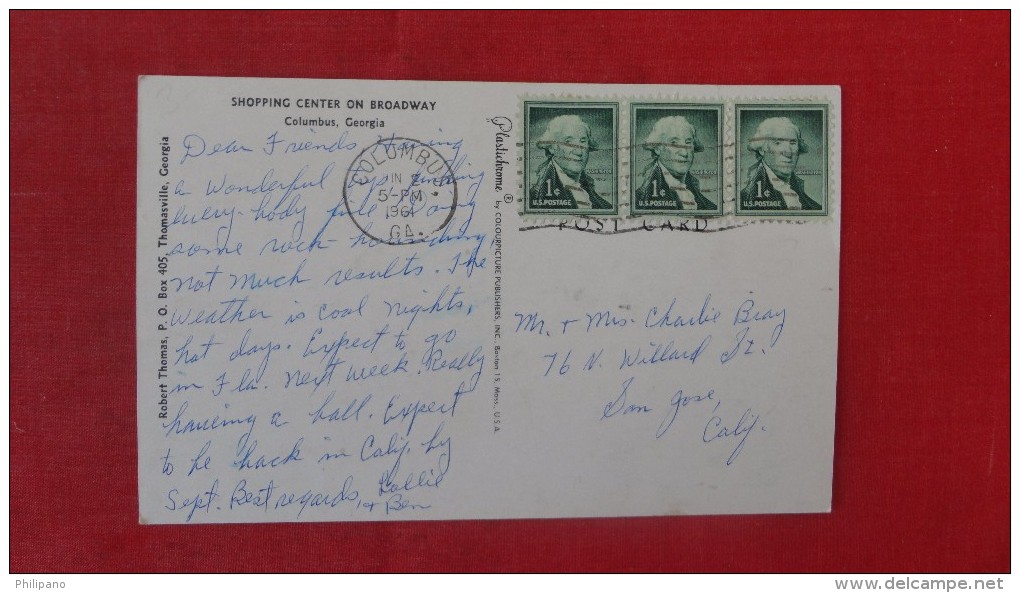 SHOPPING CENTER ON BROADWAY
Columbus, Georgia
Dear Friends, Having
a wonderful trip, finding
every-body fine. Doing
some rock-hounding,
not much results. The
weather is cool nights,
hot days. Expect to go
in Fla. next week. Really
having a ball. Expect
to be back in Calif. by
Sept. Best regards, Lollie
+ Ben
Robert Thomas, P. O. Box 405, Thomasville, Georgia
COLUMBUS
JUN 2
5-PM
1961
GA.
Plastichrome ® by COLOURPICTURE PUBLISHERS, INC. Boston 15, Mass., U.S.A.
1¢
U.S. POSTAGE
1¢
U.S. POSTAGE
1¢
U.S. POSTAGE
POST CARD
Mr. + Mrs. Charlie Bray
76 N. Willard St.
San Jose,
Calif.
Philipano
www.delcampe.net